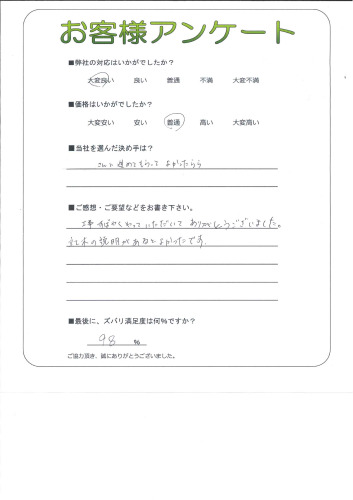 お客様アンケート
■弊社の対応はいかがでしたか？
大変良い 良い 普通 不満 大変不満
■価格はいかがでしたか？
大変安い 安い 普通 高い 大変高い
■当社を選んだ決め手は？
さんに進めてもらって よかったら
■ご感想・ご要望などをお書き下さい。
工事 すばやくやっていただいて ありがとうございました。
の説明があるとよかったです.
■最後に、ズバリ満足度は何％ですか？
98 %
ご協力頂き、誠にありがとうございました。